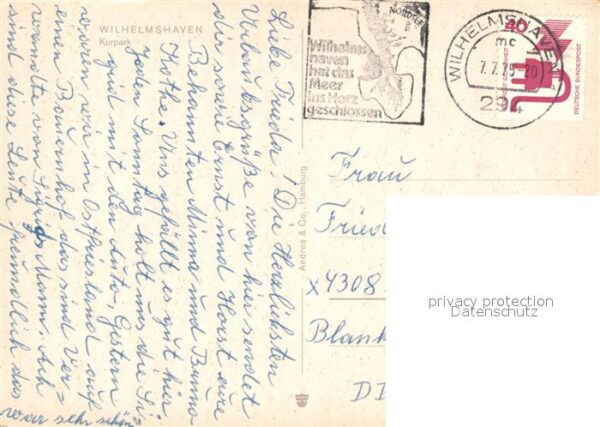 WILHELMSHAVEN
Kurpark
Liebe Frieda! Die Herzlichsten
Urlaubsgrüße von hier sendet
dir sowie Ernst und Horst eure
Bekannten Minna und Bruno
Kothe. Uns gefällt es gut hier
Jeden Sonntag holt uns die
mit den Auto, Gestern
wir in Ostfriesland auf
einem Bauernhof das sind Ver-
wandte von Mann. Ach
sind diese Leute freundlich das
war sehr schön"
Andres & Co., Hamburg
NORDSEE
Wilhelms
haven
hat das
Meer
ins Herz
geschlossen
WILHELMSHAVEN 1
mc
7.7.75-20
294
40
DEUTSCHE BUNDESPOST
Frau
Fried
x4308
Blank
DD
privacy protection
Datenschutz